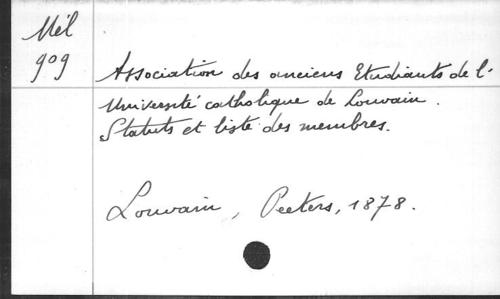 Mél
909
Association des anciens Etudiants de l'
Université catholique de Louvain.
Statuts et liste des membres.
Louvain, Peeters, 1878.